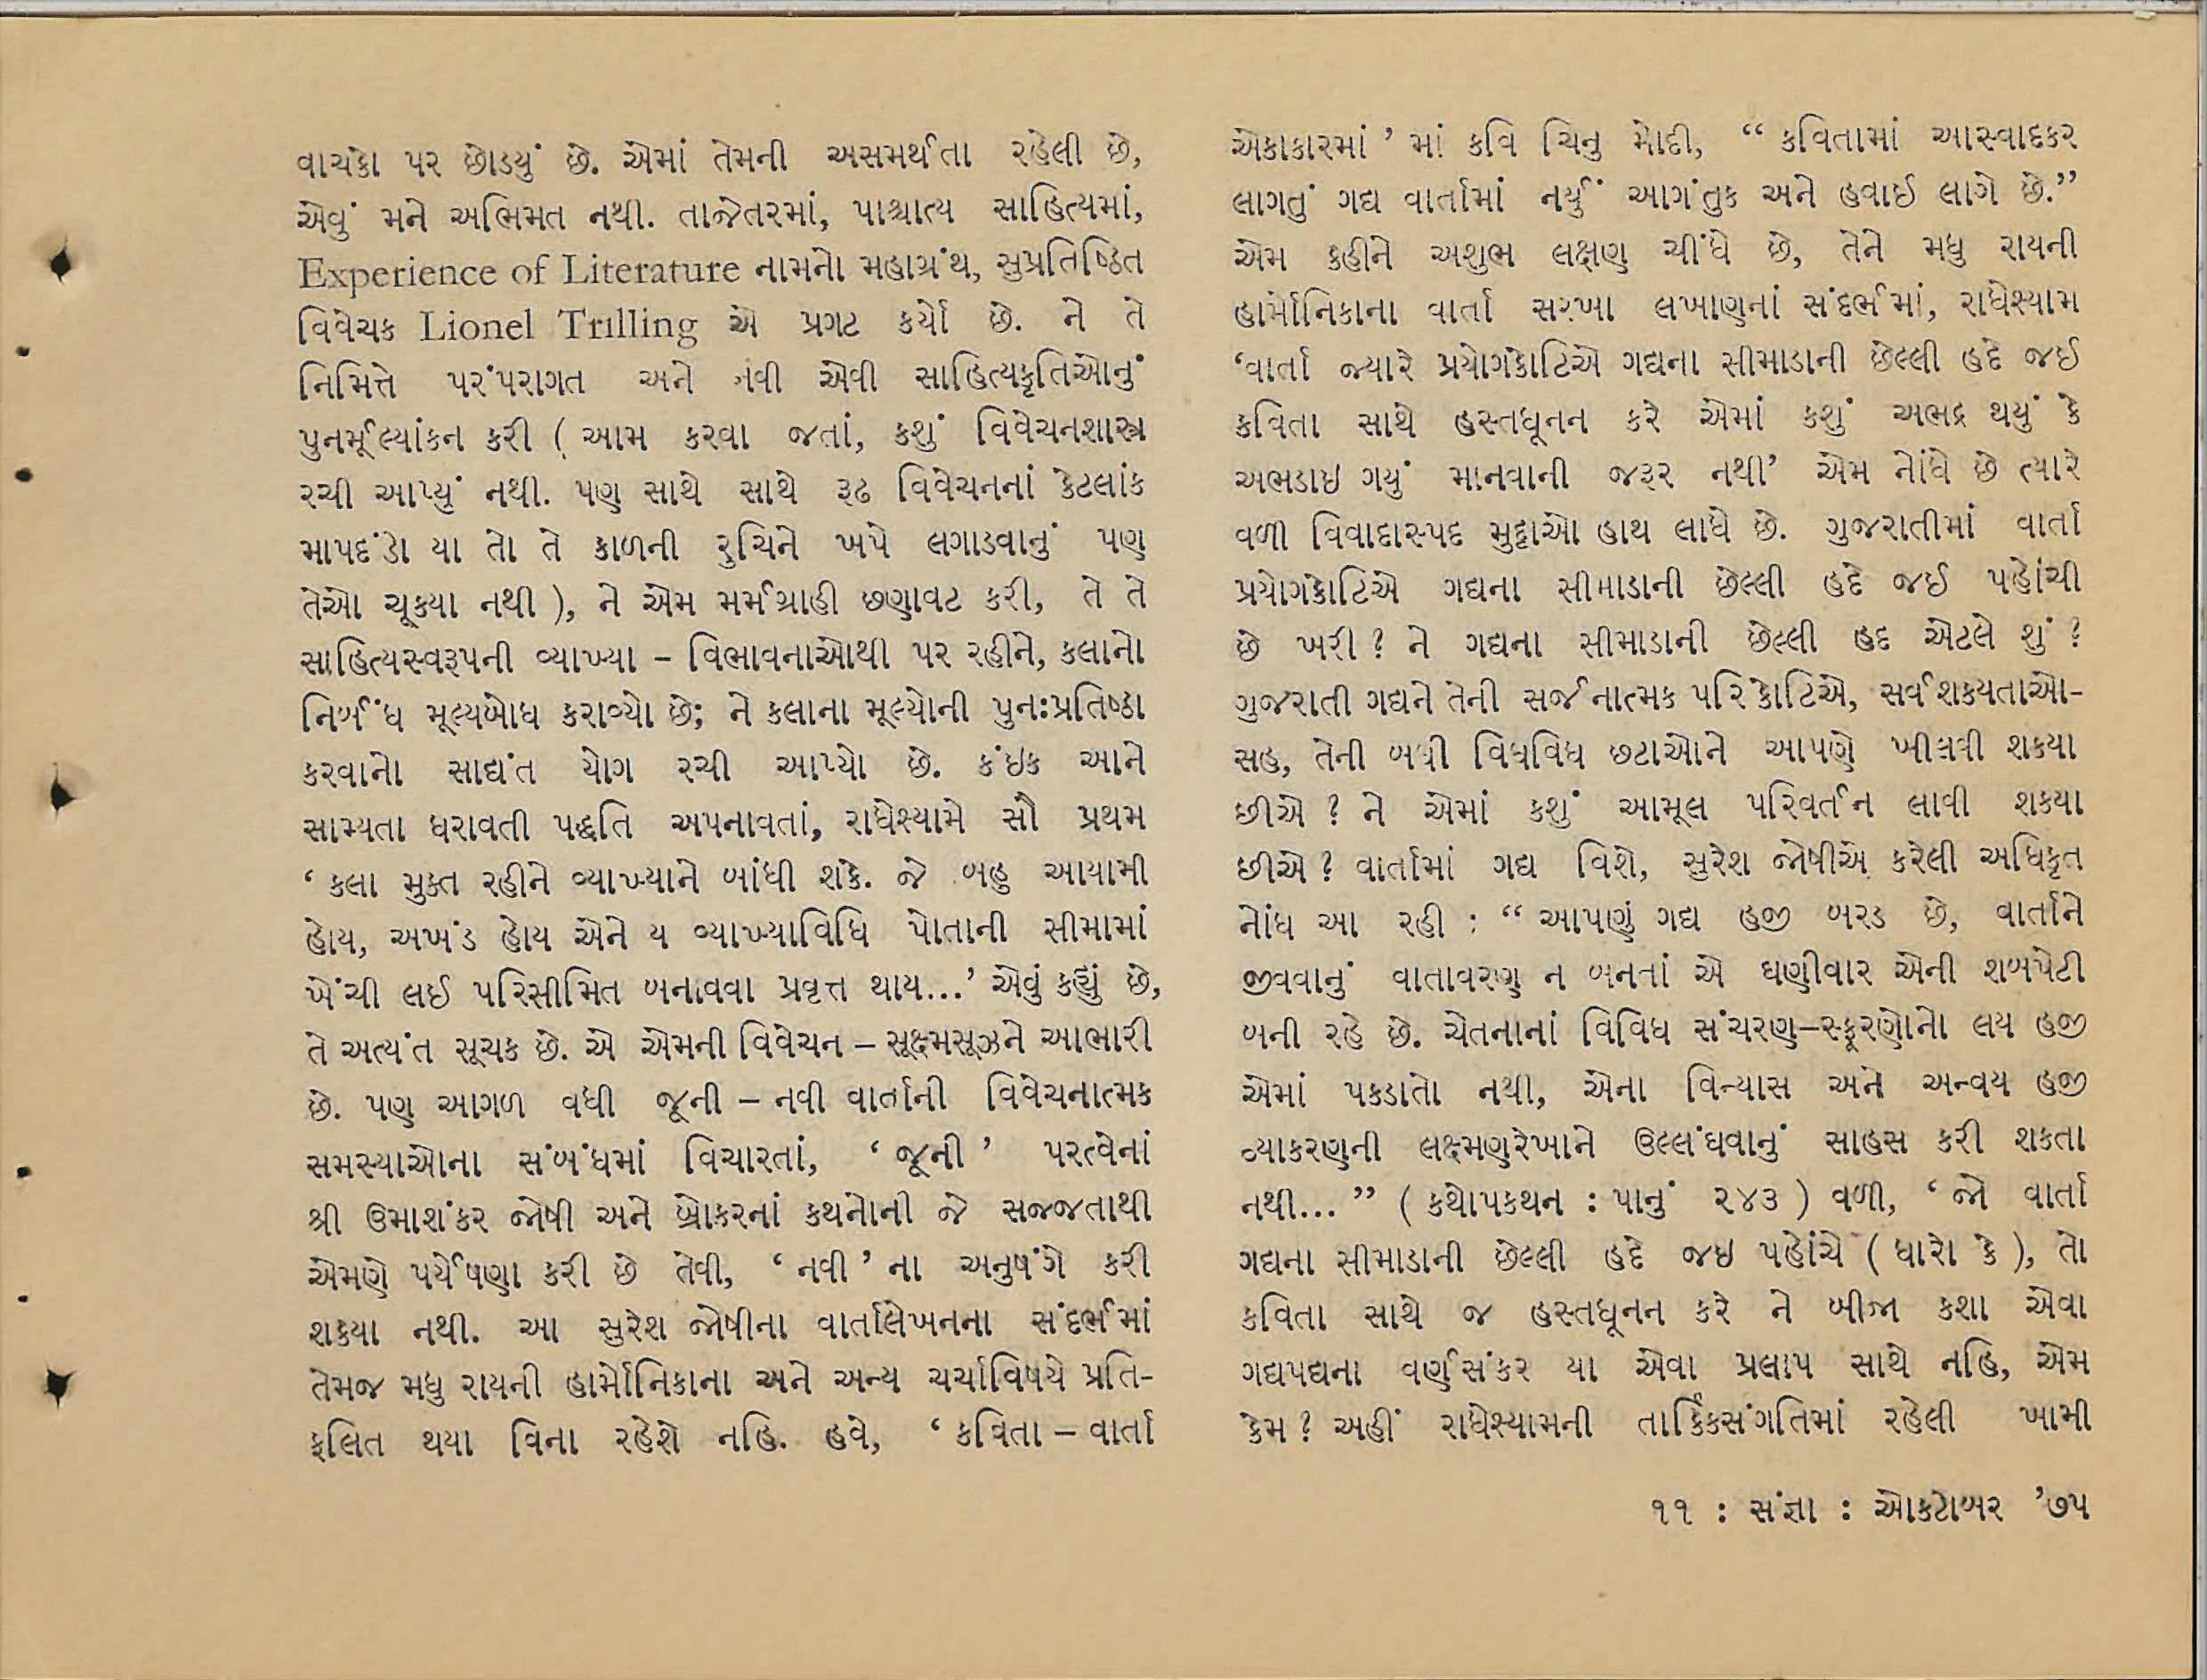 વાચકો પર છોડયું છે. એમાં તેમની અસમર્થતા રહેલી છે,
એવું મને અભિમત નથી. તાજેતરમાં, પાશ્ચાત્ય સાહિત્યમાં,
Experience of Literature નામનો મહાગ્રંથ, સુપ્રતિષ્ઠિત
વિવેચક Lionel Trilling એ પ્રગટ કર્યો છે. ને તે
નિમિત્તે પરંપરાગત અને નવી એવી સાહિત્યકૃતિઓનું
પુનર્મૂલ્યાંકન કરી ( આમ કરવા જતાં, કશું વિવેચનશાસ્ત્ર
રચી આપ્યું નથી. પણ સાથે સાથે રૂઢ વિવેચનનાં કેટલાંક
માપદંડો યા તો તે કાળની રુચિને ખપે લગાડવાનું પણ
તેઓ ચૂકયા નથી ), ને એમ મર્મગ્રાહી છણાવટ કરી, તે તે
સાહિત્યસ્વરૂપની વ્યાખ્યા – વિભાવનાઓથી પર રહીને, કલાનો
નિર્બંધ મૂલ્યબોધ કરાવ્યો છે; ને કલાના મૂલ્યોની પુનઃપ્રતિષ્ઠા
કરવાનો સાદ્યંત યોગ રચી આપ્યો છે. કંઇક આને
સામ્યતા ધરાવતી પદ્ધતિ અપનાવતાં, રાધેશ્યામે સૌ પ્રથમ
‘ કલા મુક્ત રહીને વ્યાખ્યાને બાંધી શકે. જે બહુ આયામી
હોય, અખંડ હોય એને ય વ્યાખ્યાવિધિ પોતાની સીમામાં
ખેંચી લઈ પરિસીમિત બનાવવા પ્રવૃત્ત થાય...’ એવું કહ્યું છે,
તે અત્યંત સૂચક છે. એ એમની વિવેચન – સૂક્ષ્મસૂઝને આભારી
છે. પણ આગળ વધી જૂની – નવી વાર્તાની વિવેચનાત્મક
સમસ્યાઓના સંબંધમાં વિચારતાં, ‘ જૂની ’ પરત્વેનાં
શ્રી ઉમાશંકર જોષી અને બ્રોકરનાં કથનોની જે સજ્જતાથી
એમણે પર્યેષણા કરી છે તેવી, ‘ નવી ’ ના અનુષંગે કરી
શક્યા નથી. આ સુરેશ જોષીના વાર્તાલેખનના સંદર્ભમાં
તેમજ મધુ રાયની હાર્મોનિકાના અને અન્ય ચર્ચાવિષયે પ્રતિ-
ફલિત થયા વિના રહેશે નહિ. હવે, ‘ કવિતા – વાર્તા
એકાકારમાં ’ માં કવિ ચિનુ મોદી, “ કવિતામાં આસ્વાદકર
લાગતું ગદ્ય વાર્તામાં નર્યું આગંતુક અને હવાઈ લાગે છે.”
એમ કહીને અશુભ લક્ષણ ચીંધે છે, તેને મધુ રાયની
હાર્મોનિકાના વાર્તા સરખા લખાણનાં સંદર્ભમાં, રાધેશ્યામ
‘વાર્તા જ્યારે પ્રયોગકોટિએ ગદ્યના સીમાડાની છેલ્લી હદે જઈ
કવિતા સાથે હસ્તધૂનન કરે એમાં કશું અભદ્ર થયું કે
અભડાઇ ગયું માનવાની જરૂર નથી’ એમ નોંધે છે ત્યારે
વળી વિવાદાસ્પદ મુદ્દાઓ હાથ લાધે છે. ગુજરાતીમાં વાર્તા
પ્રયોગકોટિએ ગદ્યના સીમાડાની છેલ્લી હદે જઈ પહોંચી
છે ખરી ? ને ગદ્યના સીમાડાની છેલ્લી હદ એટલે શું ?
ગુજરાતી ગદ્યને તેની સર્જનાત્મક પરિકોટિએ, સર્વશકયતાઓ-
સહ, તેની બધી વિધવિધ છટાઓને આપણે ખીલવી શકયા
છીએ ? ને એમાં કશું આમૂલ પરિવર્તન લાવી શકયા
છીએ ? વાર્તામાં ગદ્ય વિશે, સુરેશ જોષીએ કરેલી અધિકૃત
નોંધ આ રહી : “ આપણું ગદ્ય હજી બરડ છે, વાર્તાને
જીવવાનું વાતાવરણ ન બનતાં એ ઘણીવાર એની શબપેટી
બની રહે છે. ચેતનાનાં વિવિધ સંચરણ–સ્ફૂરણોનો લય હજી
એમાં પકડાતો નથી, એના વિન્યાસ અને અન્વય હજી
વ્યાકરણની લક્ષ્મણરેખાને ઉલ્લંઘવાનું સાહસ કરી શકતા
નથી... ” ( કથોપકથન : પાનું ૨૪૩ ) વળી, ‘ જો વાર્તા
ગદ્યના સીમાડાની છેલ્લી હદે જઇ પહોંચે ( ધારો કે ), તો
કવિતા સાથે જ હસ્તધૂનન કરે ને બીજા કશા એવા
ગદ્યપદ્યના વર્ણસંકર યા એવા પ્રલાપ સાથે નહિ, એમ
કેમ ? અહીં રાધેશ્યામની તાર્કિકસંગતિમાં રહેલી ખામી
૧૧ : સંજ્ઞા : ઓકટોબર ’૭૫